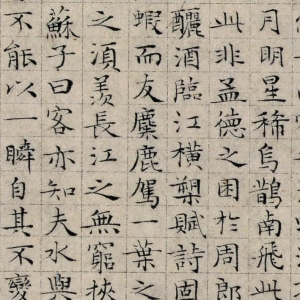 月明星稀烏鵲南飛此
此非孟德之困於周郎
釃酒臨江橫槊賦詩固
蝦而友麋鹿駕一葉之
之湏羨長江之無窮挾
蘇子曰客亦知夫水與
不能以一瞬自其不變